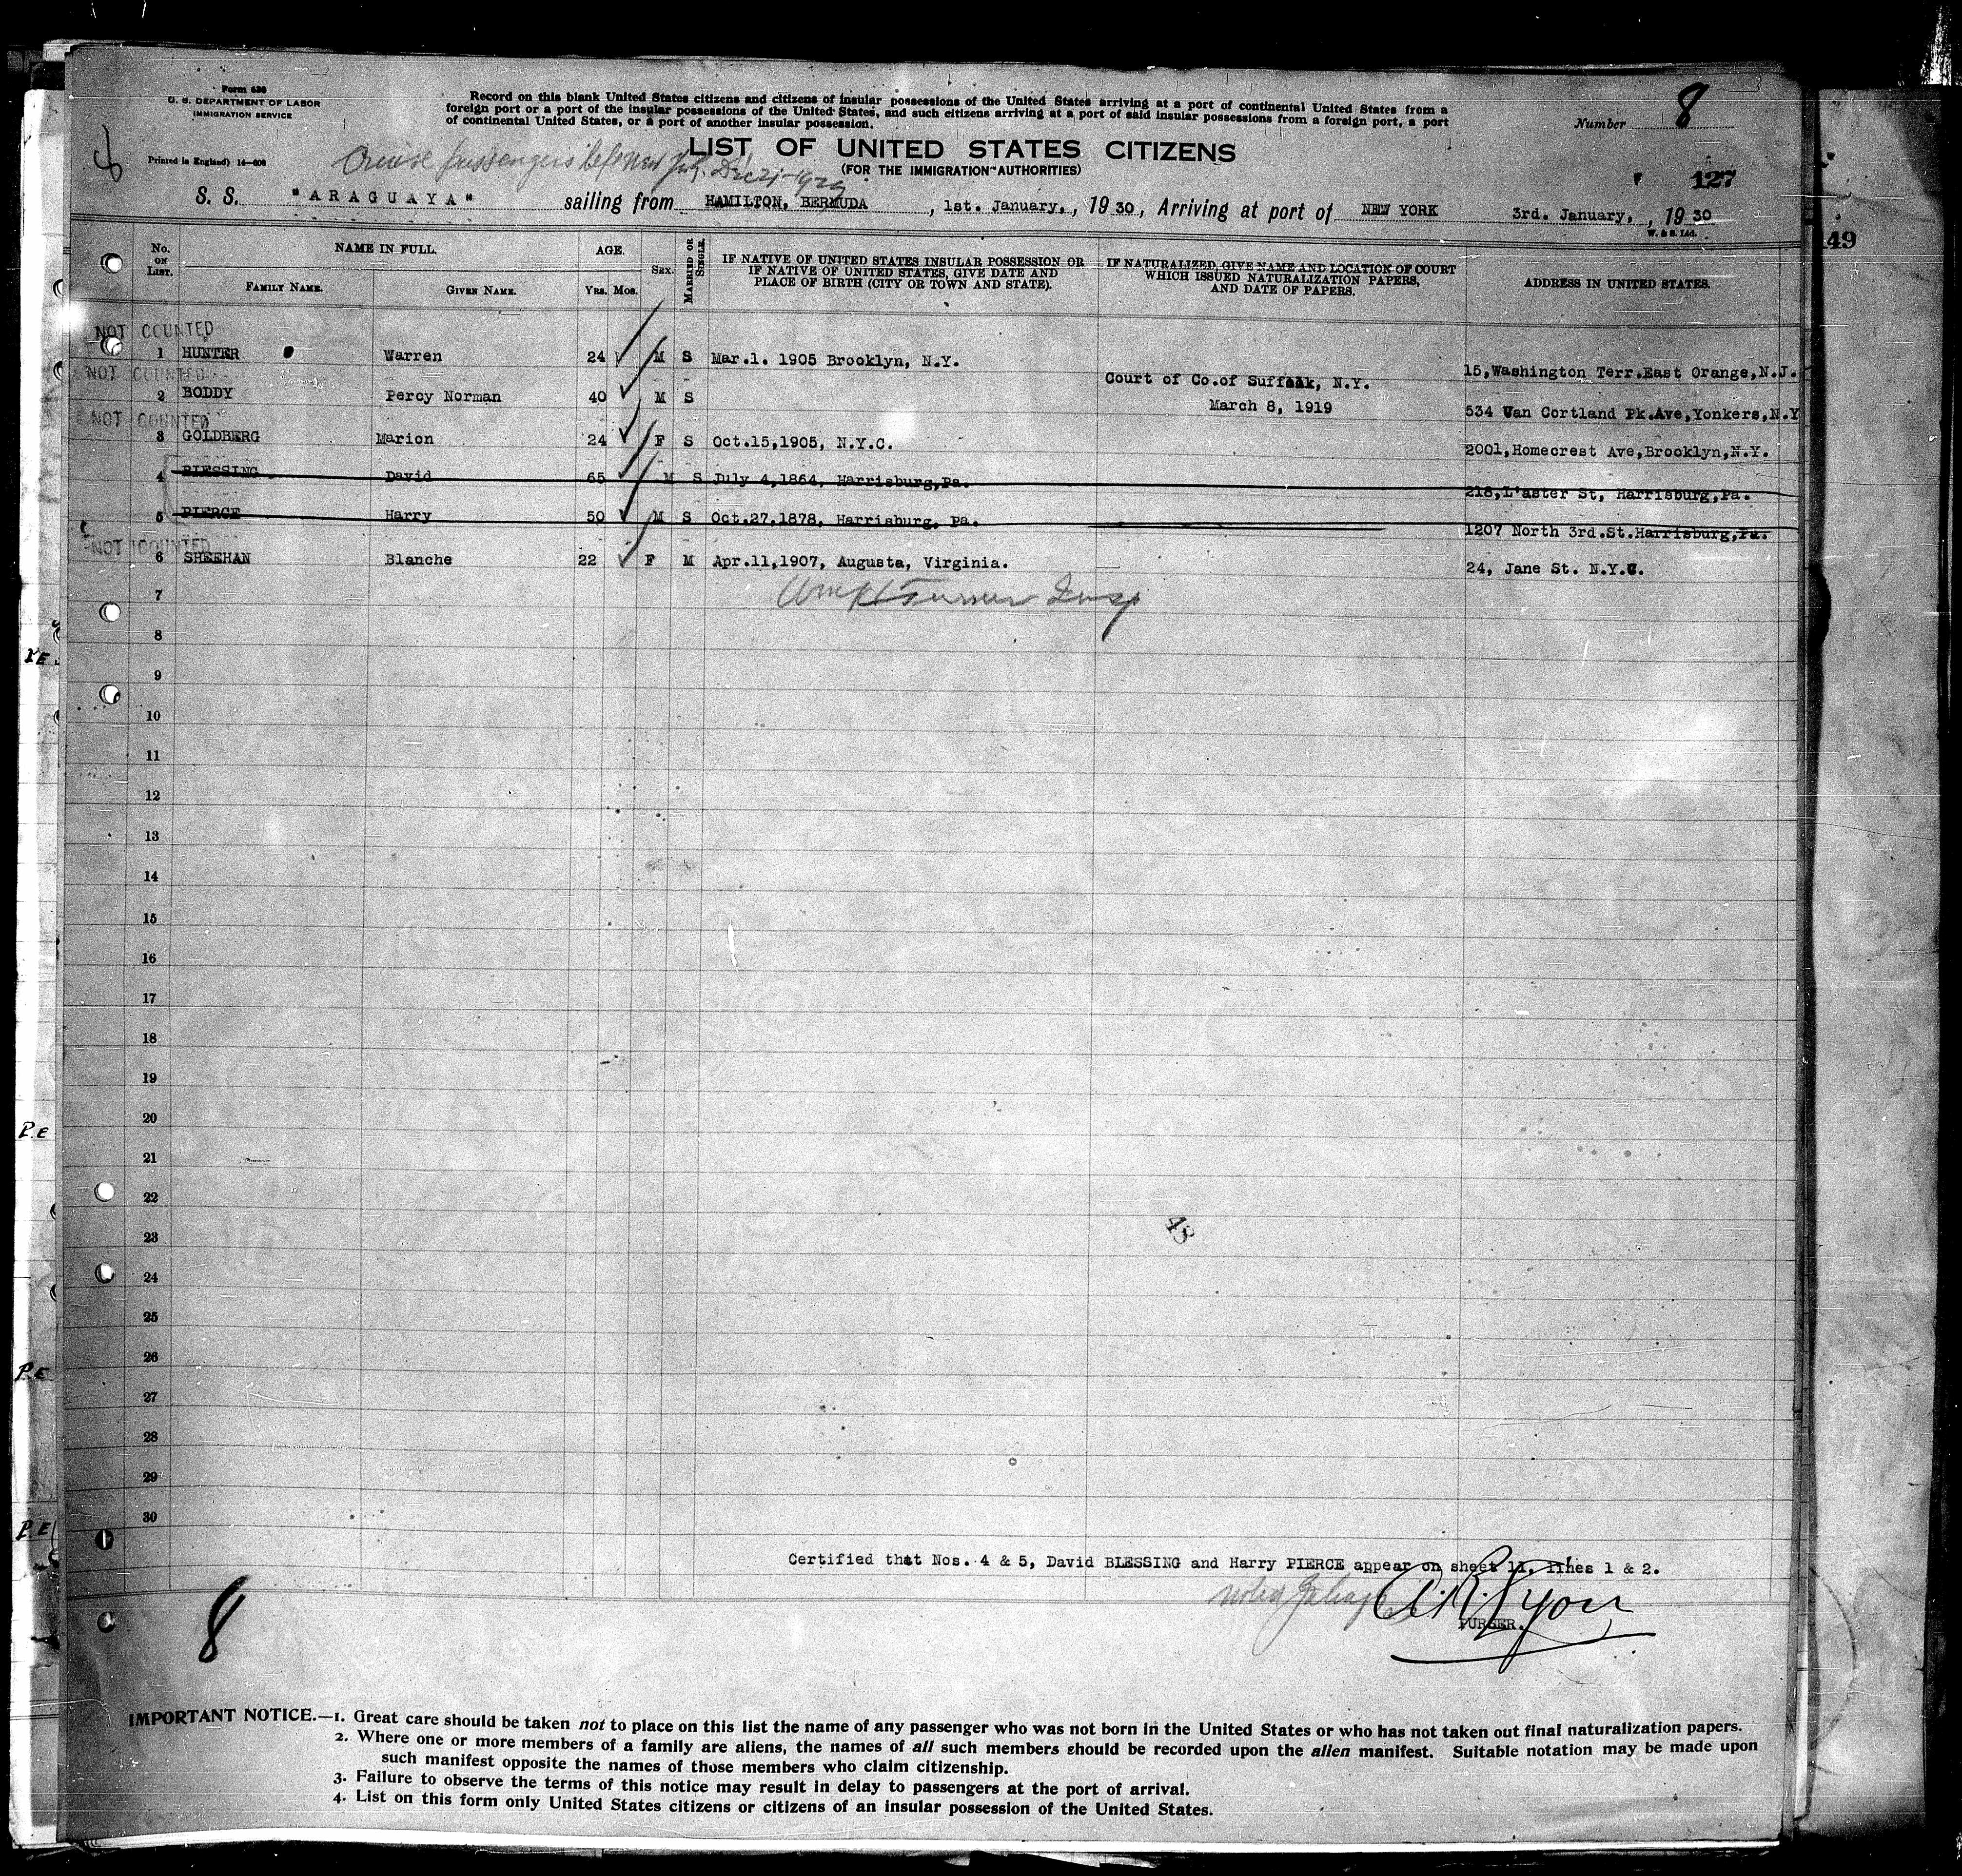 Form 630
U. S. DEPARTMENT OF LABOR
IMMIGRATION SERVICE
Printed in England) 14—606
Record on this blank United States citizens and citizens of insular possessions of the United States arriving at a port of continental United States from a
foreign port or a port of the insular possessions of the United States, and such citizens arriving at a port of said insular possessions from a foreign port, a port
of continental United States, or a port of another insular possession.
Number 8
LIST OF UNITED STATES CITIZENS
(FOR THE IMMIGRATION AUTHORITIES)
Cruise passengers left New York Dec 21-1929
127
S. S. "ARAGUAYA" sailing from HAMILTON, BERMUDA, 1st. January,, 1930, Arriving at port of NEW YORK 3rd. January,, 1930
W. & S. Ltd.
149
No. ON LIST.
NAME IN FULL.
FAMILY NAME. GIVEN NAME.
AGE.
Yrs. Mos.
SEX.
MARRIED OR SINGLE.
IF NATIVE OF UNITED STATES INSULAR POSSESSION OR
IF NATIVE OF UNITED STATES, GIVE DATE AND
PLACE OF BIRTH (CITY OR TOWN AND STATE).
IF NATURALIZED, GIVE NAME AND LOCATION OF COURT
WHICH ISSUED NATURALIZATION PAPERS,
AND DATE OF PAPERS.
ADDRESS IN UNITED STATES.
NOT COUNTED
1 HUNTER Warren 24 M S Mar.1. 1905 Brooklyn, N.Y. 15,Washington Terr.East Orange,N.J.
NOT COUNTED
2 BODDY Percy Norman 40 M S Court of Co.of Suffolk, N.Y.
March 8, 1919 534 Van Cortland Pk.Ave,Yonkers,N.Y
NOT COUNTED
3 GOLDBERG Marion 24 F S Oct.15,1905, N.Y.C. 2001,Homecrest Ave,Brooklyn,N.Y.
4 BLESSING David 65 M S July 4,1864, Harrisburg,Pa. 218,L'aster St, Harrisburg,Pa.
5 PIERCE Harry 50 M S Oct.27,1878, Harrisburg, Pa. 1207 North 3rd.St.Harrisburg,Pa.
NOT COUNTED
6 SHEEHAN Blanche 22 F M Apr.11,1907, Augusta, Virginia. 24, Jane St. N.Y.C.
7
8
9
10
11
12
13
14
15
16
17
18
19
20
21
22
23
24
25
26
27
28
29
30
P.E
P.E
P.E
43
Certified that Nos. 4 & 5, David BLESSING and Harry PIERCE appear on sheet 11, lines 1 & 2.
PURSER.
8
IMPORTANT NOTICE.—1. Great care should be taken not to place on this list the name of any passenger who was not born in the United States or who has not taken out final naturalization papers.
2. Where one or more members of a family are aliens, the names of all such members should be recorded upon the alien manifest. Suitable notation may be made upon
such manifest opposite the names of those members who claim citizenship.
3. Failure to observe the terms of this notice may result in delay to passengers at the port of arrival.
4. List on this form only United States citizens or citizens of an insular possession of the United States.